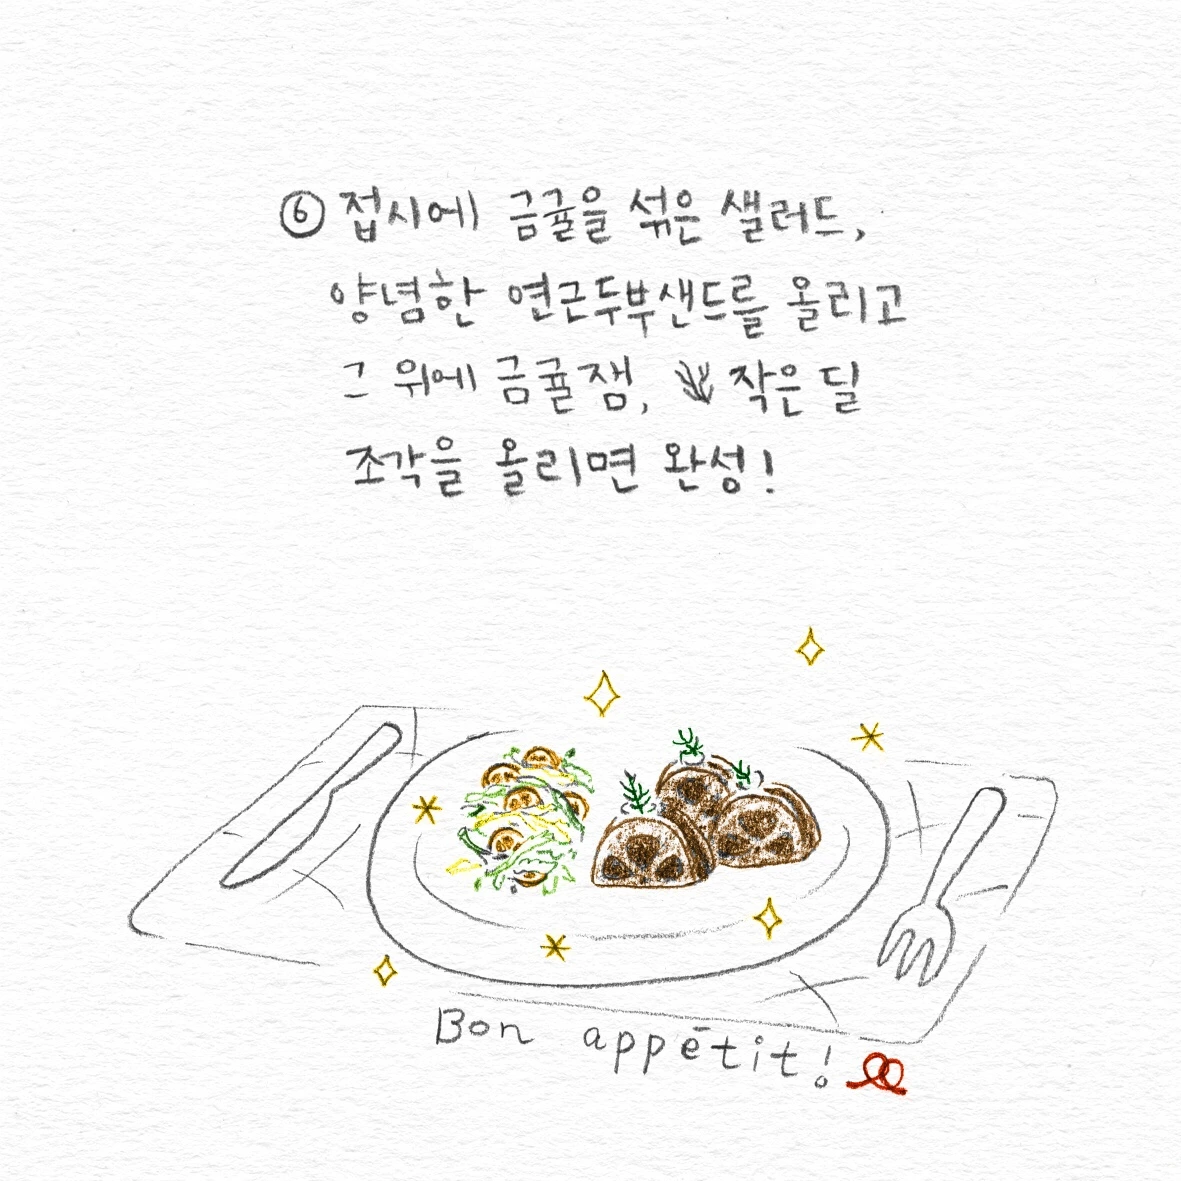 ⑥ 접시에 금귤을 섞은 샐러드,
양념한 연근두부샌드를 올리고
그 위에 금귤잼, 작은 딜
조각을 올리면 완성!
Bon appētit!